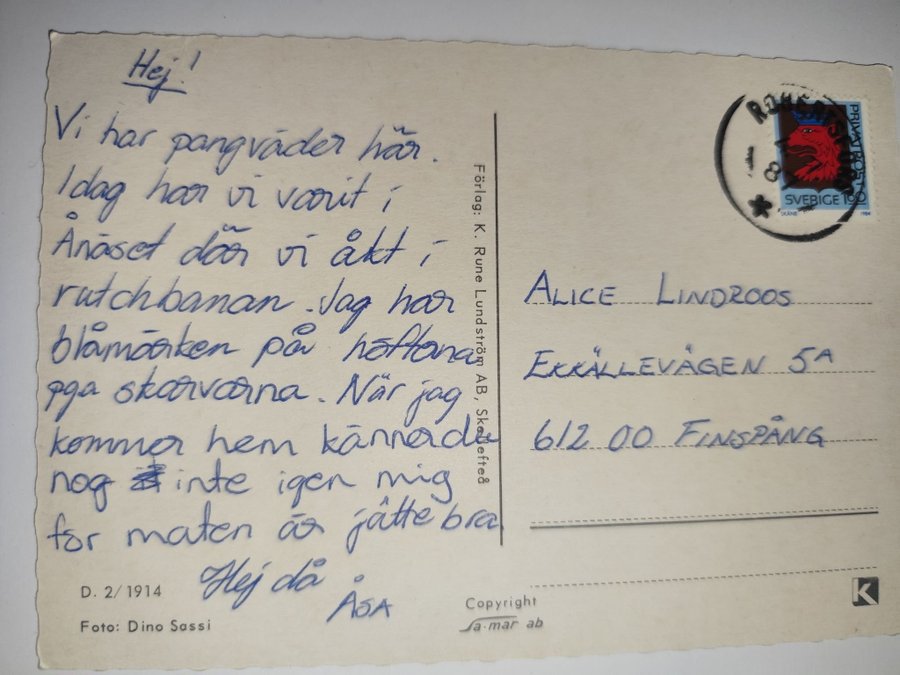 Hej!
Vi har pangväder här.
Idag har vi varit i
Ånäset där vi åkt i
rutchbanan. Jag har
blåmärken på höfterna
pga skarvarna. När jag
kommer hem känner du
nog inte igen mig
för maten är jättebra.
Hej då
ÅSA
D. 2/1914
Foto: Dino Sassi
Förlag: K. Rune Lundström AB, Skellefteå
Copyright
sa-mar ab
PRIVATPOST
SVERIGE
SKÅNE
1984
ALICE LINDROOS
EKKÄLLEVÄGEN 5A
612 00 FINSPÅNG
K